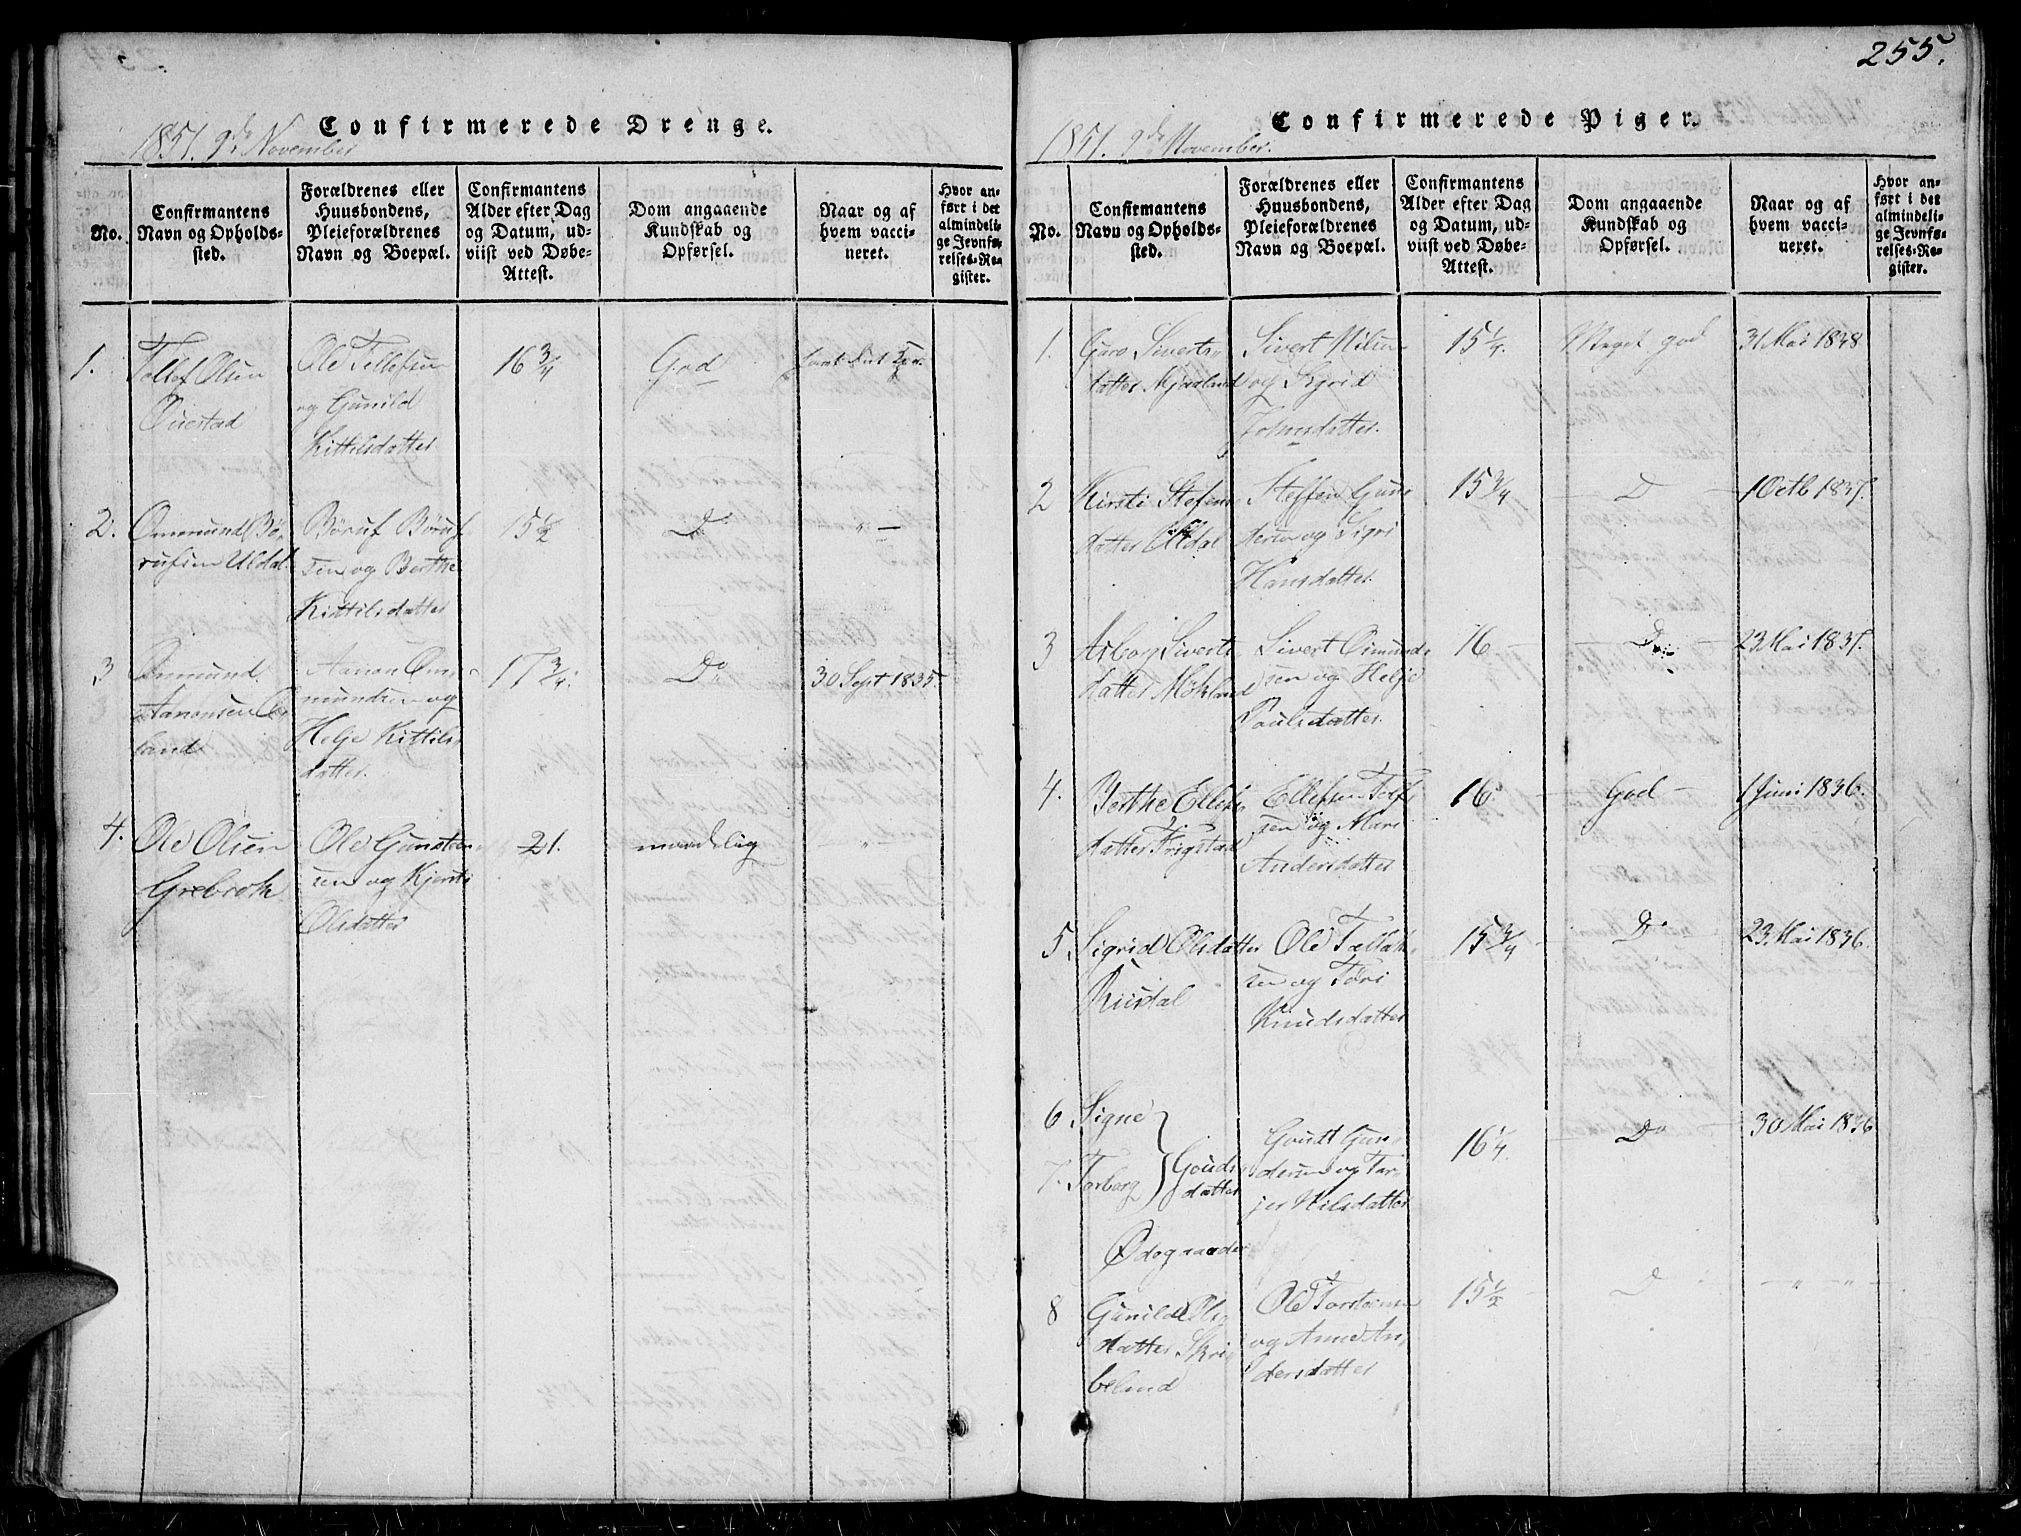 255.
Confirmerede Drenge.
1851. 9de November
No.
Confirmantens
Navn og Opholds-
sted.
Forældrenes eller
Huusbondens,
Pleieforældrenes
Navn og Boepæl.
Confirmantens
Alder efter Dag
og Datum, ud-
viist ved Døbe-
Attest.
Dom angaaende
Kundskab og
Opførsel.
Naar og af
hvem vacci-
neret.
Hvor an-
ført i det
almindeli-
ge Jevnfø-
relses-Re-
gister.
1.
Tellef Olsen
Ole Tellefsen
og Gunild
Kittilsdatter
16 3/4
God
2.
Ommund Bø-
rufsen Uldal
Børuf Børuf-
sen og Berthe
Kittilsdatter
15 1/2
Do
" —
3
Ommund
Aanonsen
land
Aanon Om-
mundsen og
Helje Kittils-
datter
17 3/4.
Do
30 Sept 1835.
4.
Ole Olsen
Grebrok
Ole Gunsten-
sen og Kjersti
Olsdatter
21.
maadelig
— " —
Confirmerede Piger.
1851. 9de November.
No.
Confirmantens
Navn og Opholds-
sted.
Forældrenes eller
Huusbondens,
Pleieforældrenes
Navn og Boepæl.
Confirmantens
Alder efter Dag
og Datum, ud-
viist ved Døbe-
Attest.
Dom angaaende
Kundskab og
Opførsel.
Naar og af
hvem vacci-
neret.
Hvor an-
ført i det
almindeli-
ge Jevnfø-
relses-Re-
gister.
1.
Guro Siverts-
datter
Sivert Nilsen
og Sigrid
Johnsdatter.
15 1/4.
Meget god
31 Mai 1838
2
Kirsti Stefens-
datter Uldal
Steffen Gun-
dersen og Sigri
Hansdatter.
15 3/4
— D —
1 Octb 1837.
3
Asborg Siverts-
datter Mökland
Sivert Osmunds-
sen og Helje
Paulsdatter.
16 —
— Do —
23 Mai 1837.
4.
Berthe Ellefs-
datter Frigstad
Ellefsen Tolf-
sen og Mari
Andersdatter
16
God —
1 Juni 1836.
5.
Sigrid Olsdatter
Riisdal
Ole Tellak-
sen og Töri
Knudsdatter
15 3/4
Do
23 Mai 1836.
6
Signe
7.
Torborg
Gouds-
datter
Ødegaarden
Goudt Gun-
dersen og Tar-
jer Nilsdatter
16 1/4
Do
30 Mai 1836
8
Gunild Ols-
datter Skri-
beland
Ole Torstensen
og Anne An-
dersdatter
15 1/2
D
— " — " —